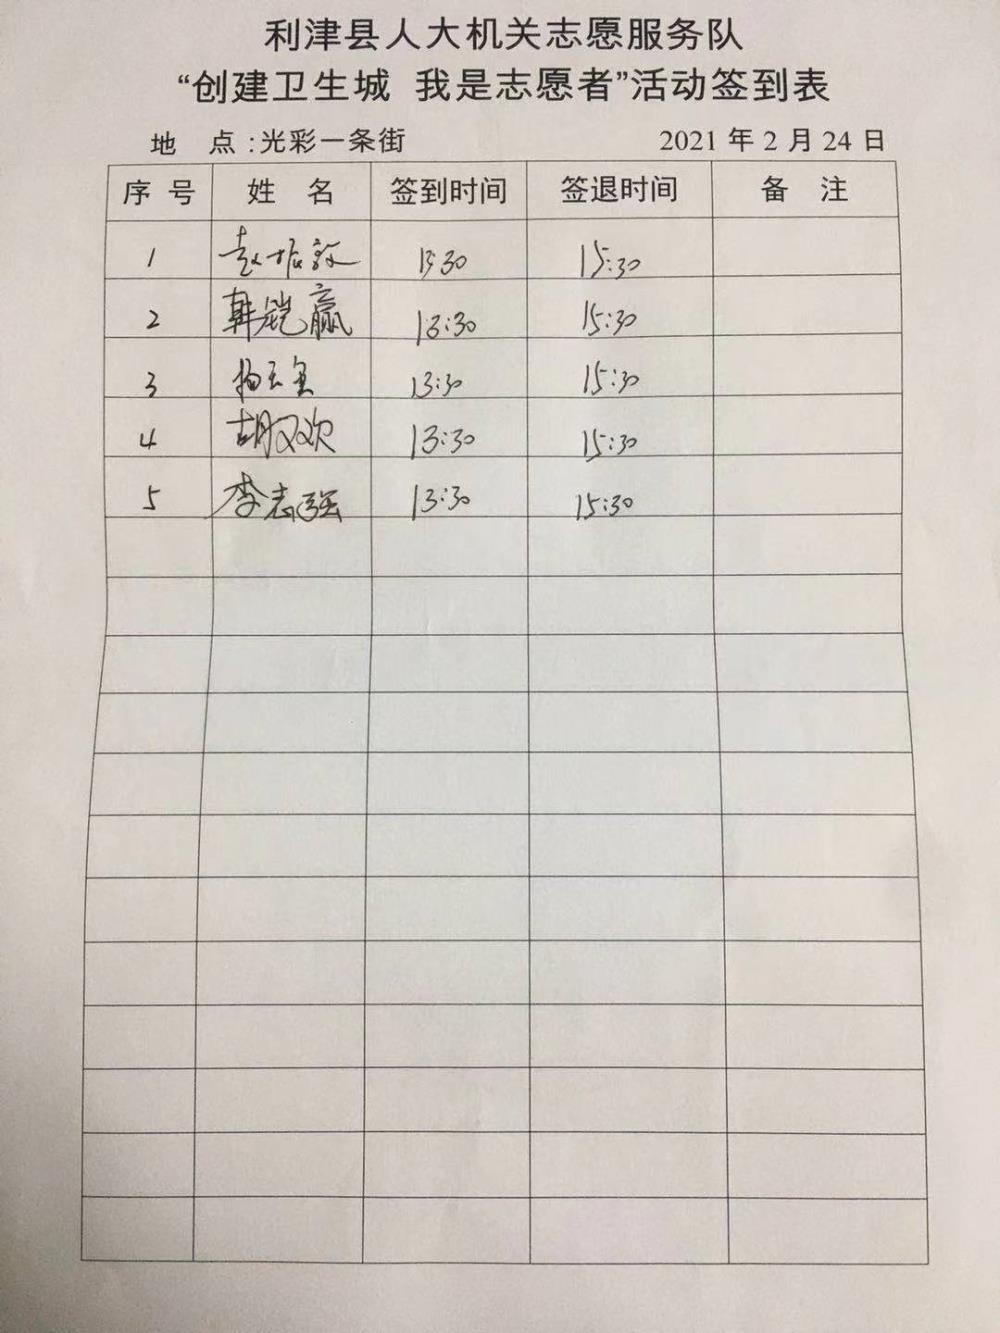 利津县人大机关志愿服务队
“创建卫生城 我是志愿者”活动签到表
地 点:光彩一条街 2021年2月24日
序号 姓名 签到时间 签退时间 备注
1 赵 13:30 15:30
2 韩铠赢 13:30 15:30
3 13:30 15:30
4 胡双欢 13:30 15:30
5 李志强 13:30 15:30